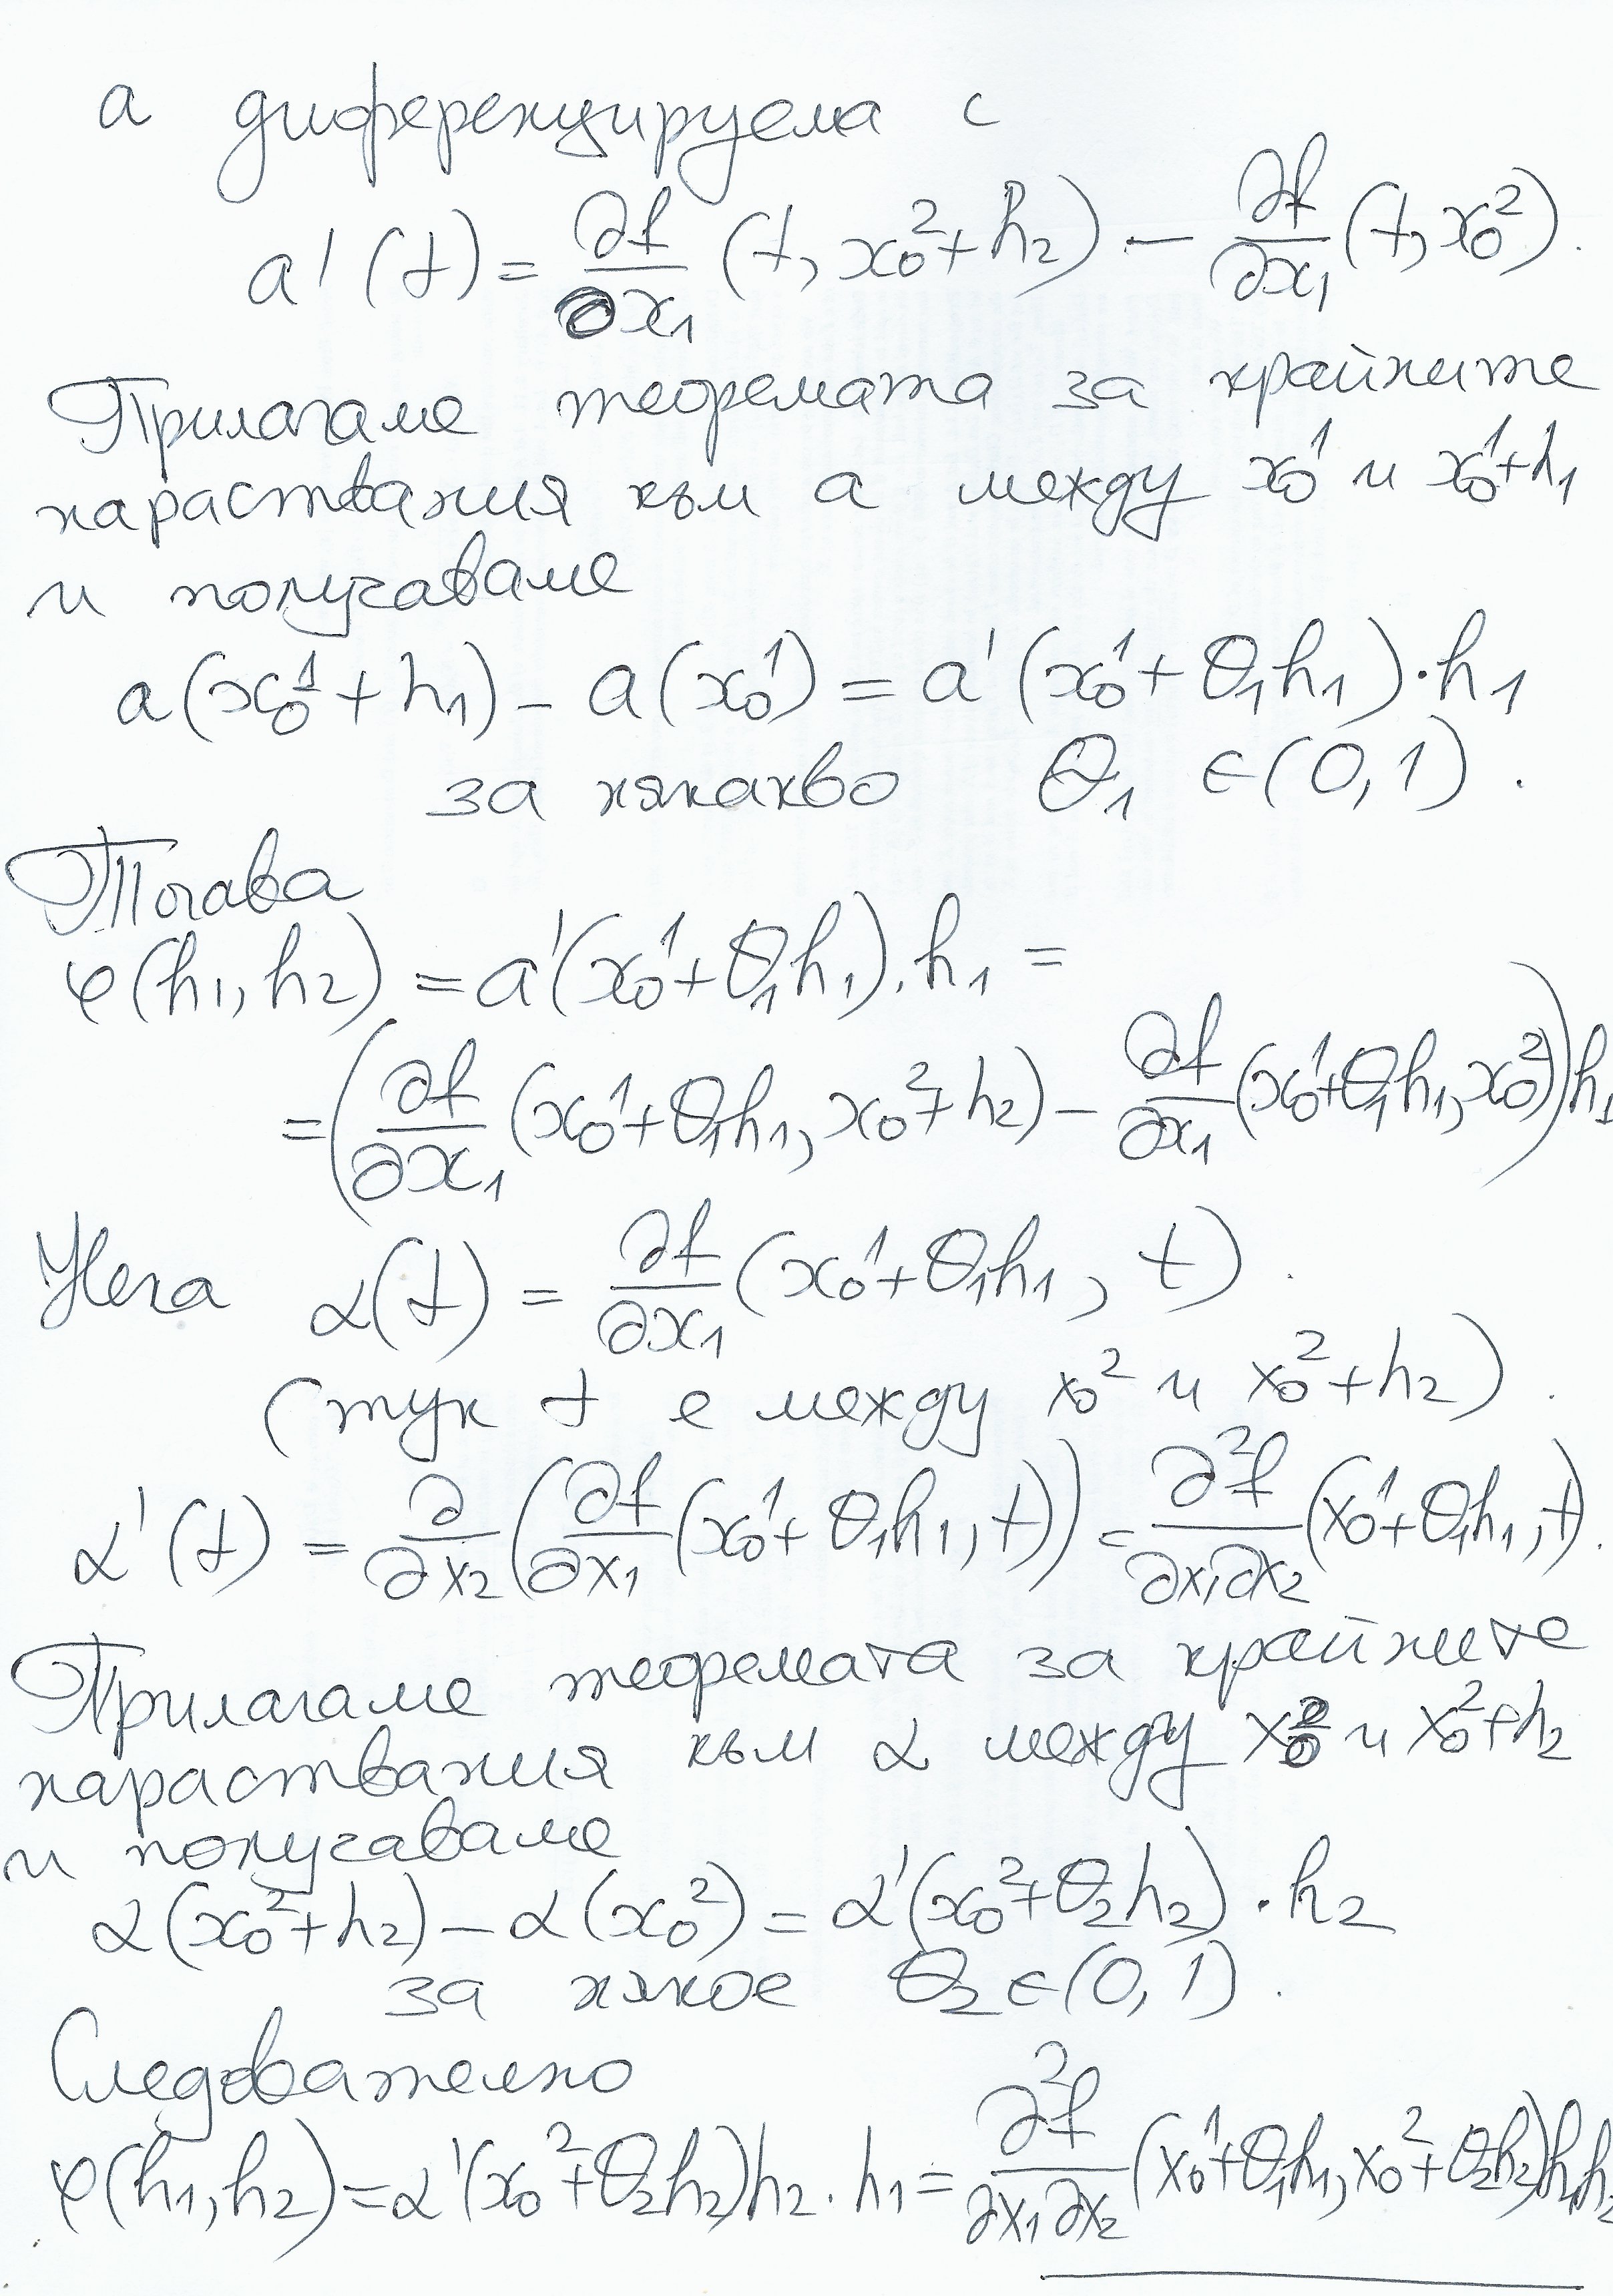 a диференцируема с
a'(t) = ∂f/∂x₁ (t, x₀² + h₂) − ∂f/∂x₁ (t, x₀²).
Прилагаме теоремата за крайните
нараствания към a между x₀¹ и x₀¹+h₁
и получаваме
a(x₀¹ + h₁) − a(x₀¹) = a'(x₀¹ + θ₁h₁)·h₁
за някакво θ₁ ∈ (0,1).
Тогава
φ(h₁, h₂) = a'(x₀¹ + θ₁h₁).h₁ =
= (∂f/∂x₁ (x₀¹ + θ₁h₁, x₀² + h₂) − ∂f/∂x₁ (x₀¹ + θ₁h₁, x₀²)) h₁
Нека α(t) = ∂f/∂x₁ (x₀¹ + θ₁h₁, t).
(тук t е между x₀² и x₀² + h₂).
α'(t) = ∂/∂x₂ (∂f/∂x₁ (x₀¹ + θ₁h₁, t)) = ∂²f/∂x₁∂x₂ (x₀¹ + θ₁h₁, t).
Прилагаме теоремата за крайните
нараствания към α между x₀² и x₀²+h₂
и получаваме
α(x₀² + h₂) − α(x₀²) = α'(x₀² + θ₂h₂)·h₂
за някое θ₂ ∈ (0,1).
Следователно
φ(h₁, h₂) = α'(x₀² + θ₂h₂)h₂.h₁ = ∂²f/∂x₁∂x₂ (x₀¹ + θ₁h₁, x₀² + θ₂h₂)h₁h₂